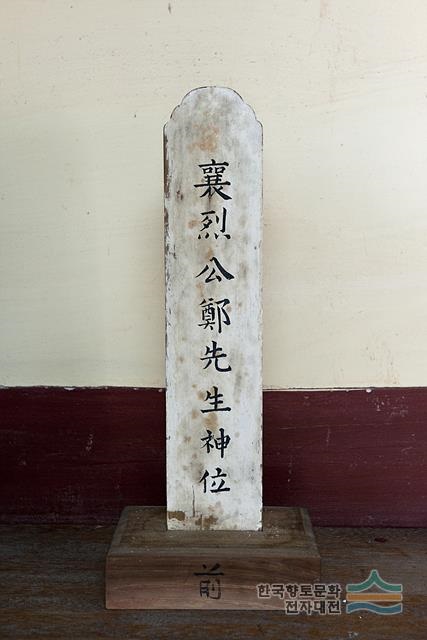 襄烈公鄭先生神位
前
한국향토문화
전자대전